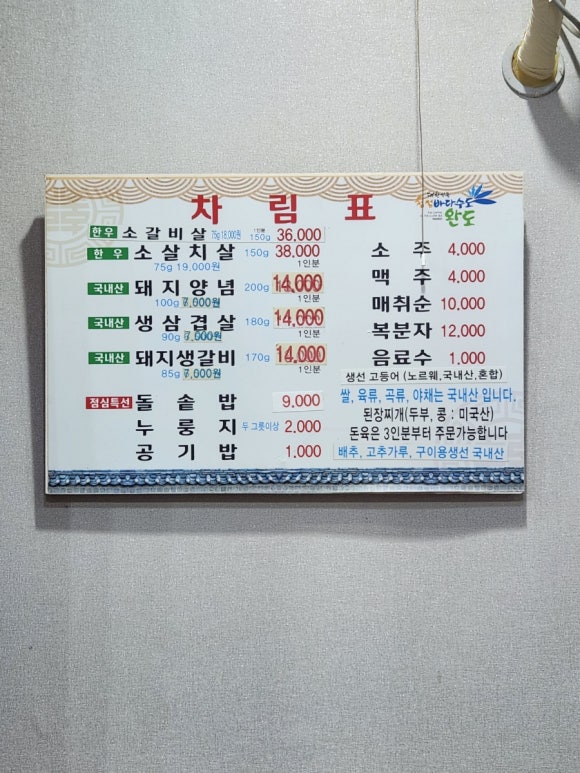 차 림 표
바다수도
완도
한우 소갈비살 75g 18,000원 1인분 150g 36,000
한우 소살치살 150g 38,000
75g 19,000원 1인분
국내산 돼지양념 200g 14,000
100g 7,000원 1인분
국내산 생삼겹살 180g 14,000
90g 7,000원 1인분
국내산 돼지생갈비 170g 14,000
85g 7,000원 1인분
점심특선 돌솥밥 9,000
누룽지 두 그릇이상 2,000
공기밥 1,000
소 주 4,000
맥 주 4,000
매취순 10,000
복분자 12,000
음료수 1,000
생선 고등어 (노르웨,국내산,혼합)
쌀, 육류, 곡류, 야채는 국내산 입니다.
된장찌개(두부, 콩 : 미국산)
돈육은 3인분부터 주문가능합니다
배추, 고추가루, 구이용생선 국내산